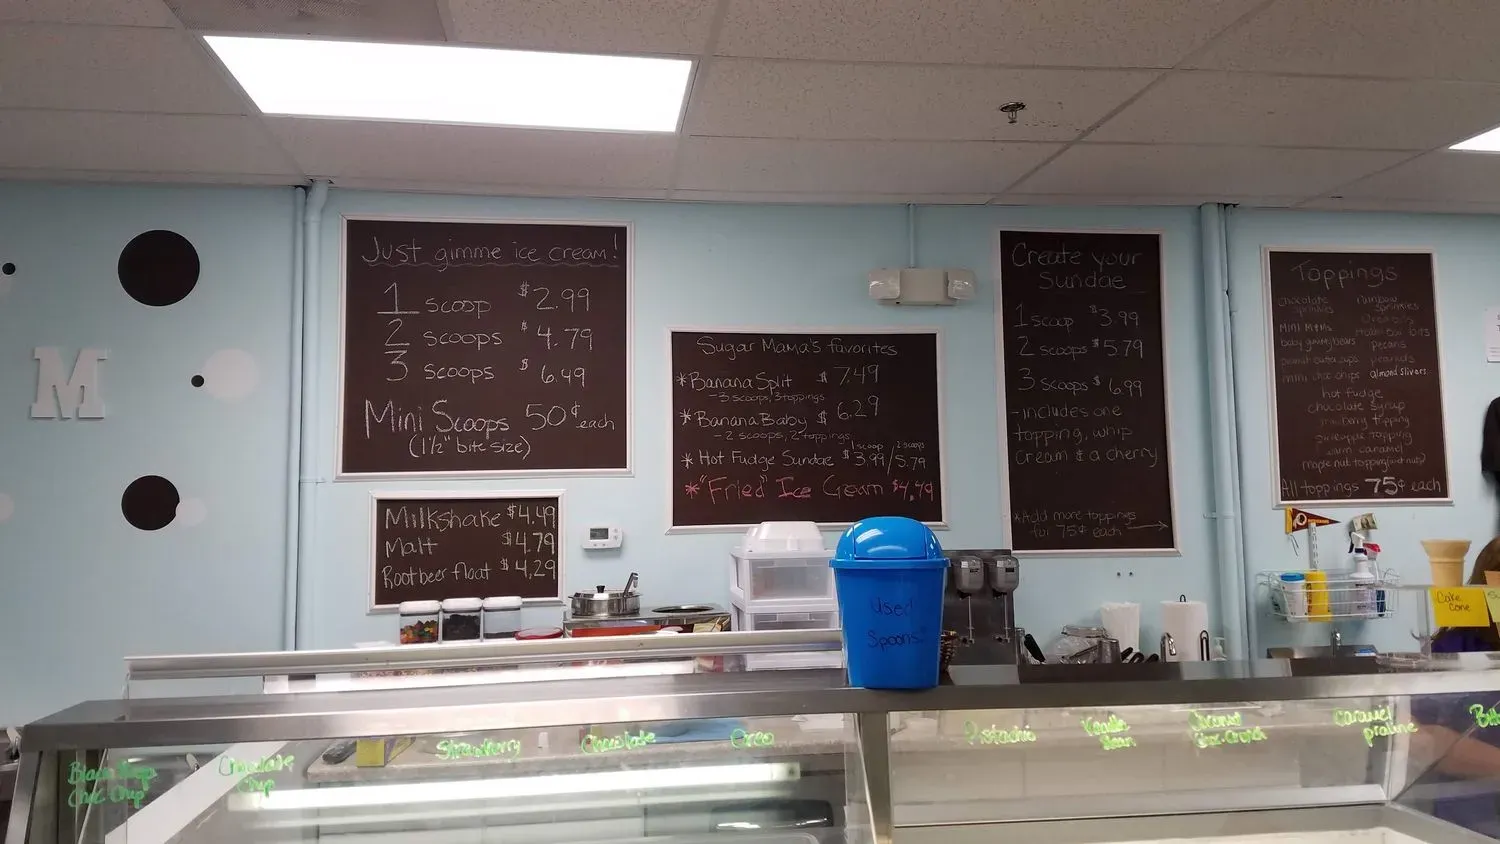 M
Just gimme ice cream!
1 scoop $2.99
2 scoops $4.79
3 scoops $6.49
Mini Scoops 50¢ each
(1½" bite size)
Milkshake $4.49
Malt $4.79
Rootbeer float $4.29
Sugar Mama's favorites
*Banana Split $7.49
-3 scoops, 3 toppings
*Banana Baby $6.29
-2 scoops, 2 toppings
1 scoop 2 scoops
*Hot Fudge Sundae $3.99/5.79
*"Fried" Ice Cream $4.79
Create your
Sundae
1 scoop $3.99
2 scoops $5.79
3 scoops $6.99
-includes one
topping, whip
cream & a cherry
*Add more toppings
for 75¢ each
Toppings
chocolate sprinkles
rainbow sprinkles
mini m&ms
baby gummy bears
pecans
peanut butter cups
peanuts
mini choc chips
almond slivers
hot fudge
chocolate syrup
pineapple topping
warm caramel
All toppings 75¢ each
Used
Spoons
Cake
cone
Black Rasp
Choc Chip
Chocolate
Chip
Strawberry
Chocolate
Oreo
Pistachio
Vanilla
Bean
Coconut
Choc-Crunch
Caramel
praline